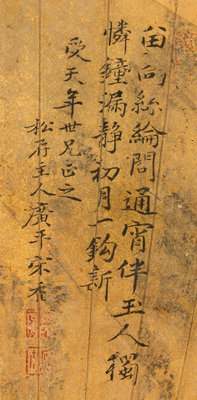 留向絲綸問通宵伴玉人獨
憐鐘漏靜初月一鈎新
受天年世兄正之
松存主人廣平宋